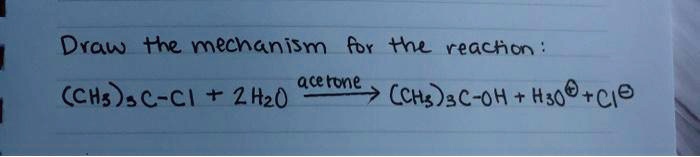 Draw the mechanism for the reaction:
(CH₃)₃C-Cl + 2H₂O acetone → (CH₃)₃C-OH + H₃O⊕ + Cl⊖